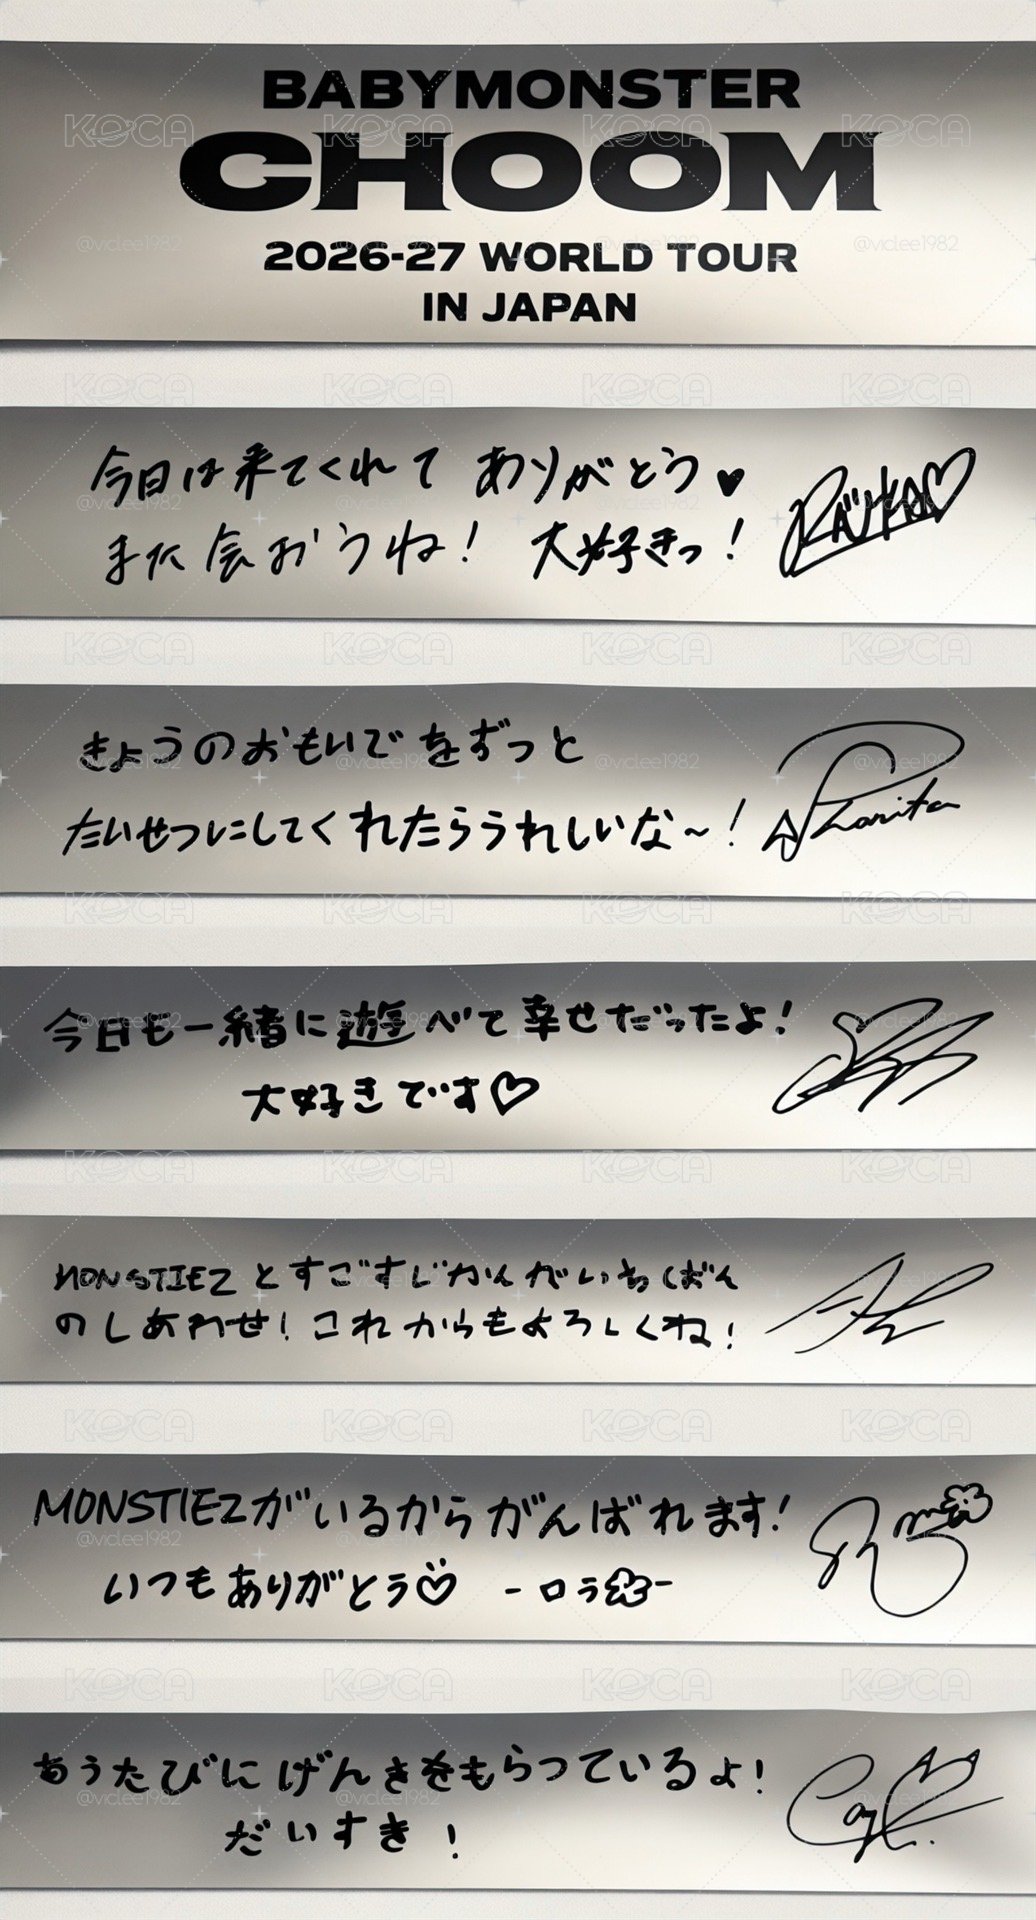 BABYMONSTER
CHOOM
2026-27 WORLD TOUR
IN JAPAN
今日は来てくれて ありがとう♥
また会おうね! 大好きっ!
RUKA♡
きょうのおもいでをずっと
たいせつにしてくれたらうれしいな~!
Pharita
今日も一緒に遊べて幸せだったよ!
大好きです♡
MONSTIEZとすごすじかんがいちばん
のしあわせ!これからもよろしくね!
MONSTIEZがいるからがんばれます!
いつもありがとう♡ -ロラ-
あうたびにげんきをもらっているよ!
だいすき!
KOCA
@viclee1982